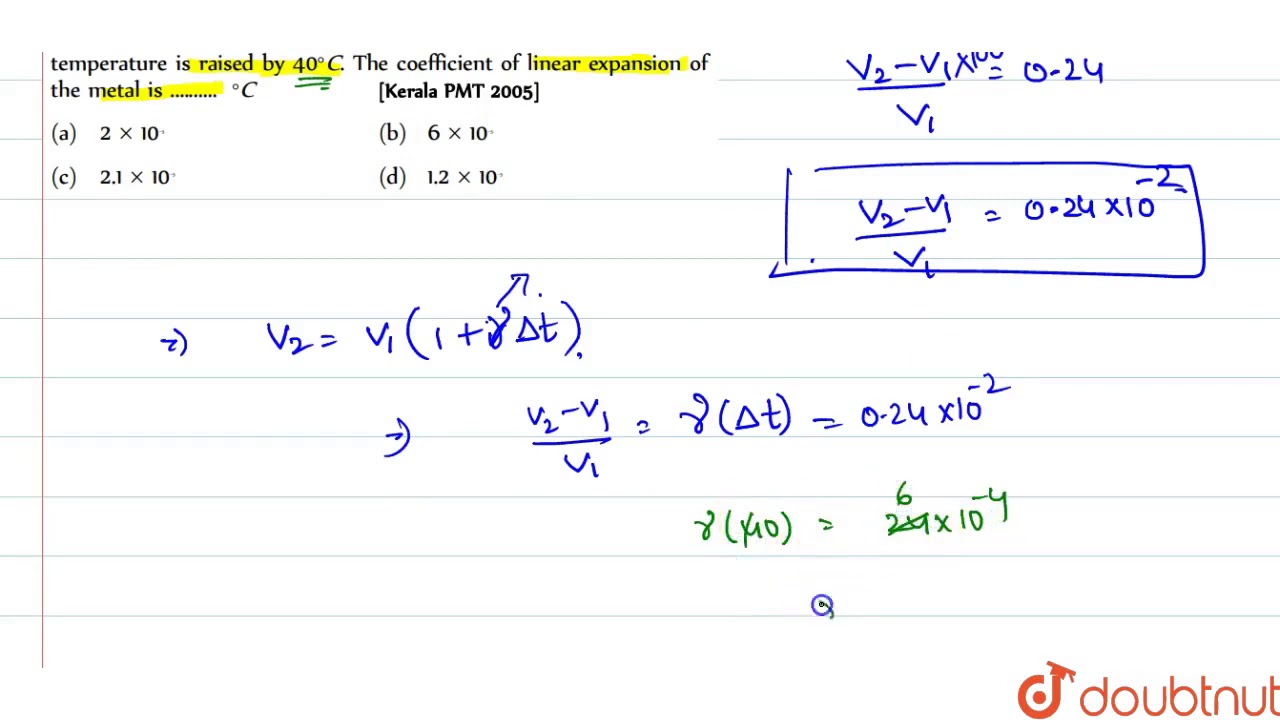 temperature is raised by 40°C. The coefficient of linear expansion of
the metal is .......... °C [Kerala PMT 2005]
(a) 2 × 10 (b) 6 × 10
(c) 2.1 × 10 (d) 1.2 × 10
V₂-V₁ ×100 = 0.24
V₁
V₂-V₁ = 0.24×10⁻²
V₁
⇒ V₂ = V₁(1+γΔt)
⇒ V₂-V₁ = γ(Δt) = 0.24×10⁻²
V₁
6
γ(40) = 24×10⁻⁴
doubtnut